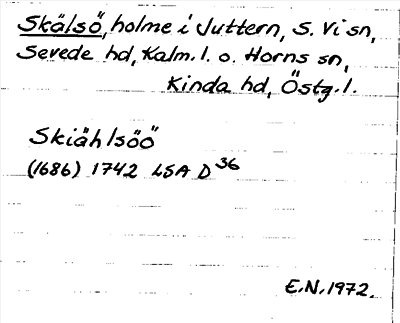 Skälsö, holme i Juttern, S. Vi sn,
Sevede hd, Kalm. l. o. Horns sn,
Kinda hd, Östg. l.
Skiählsöö
(1686) 1742 LSA D 36
E.N. 1972.